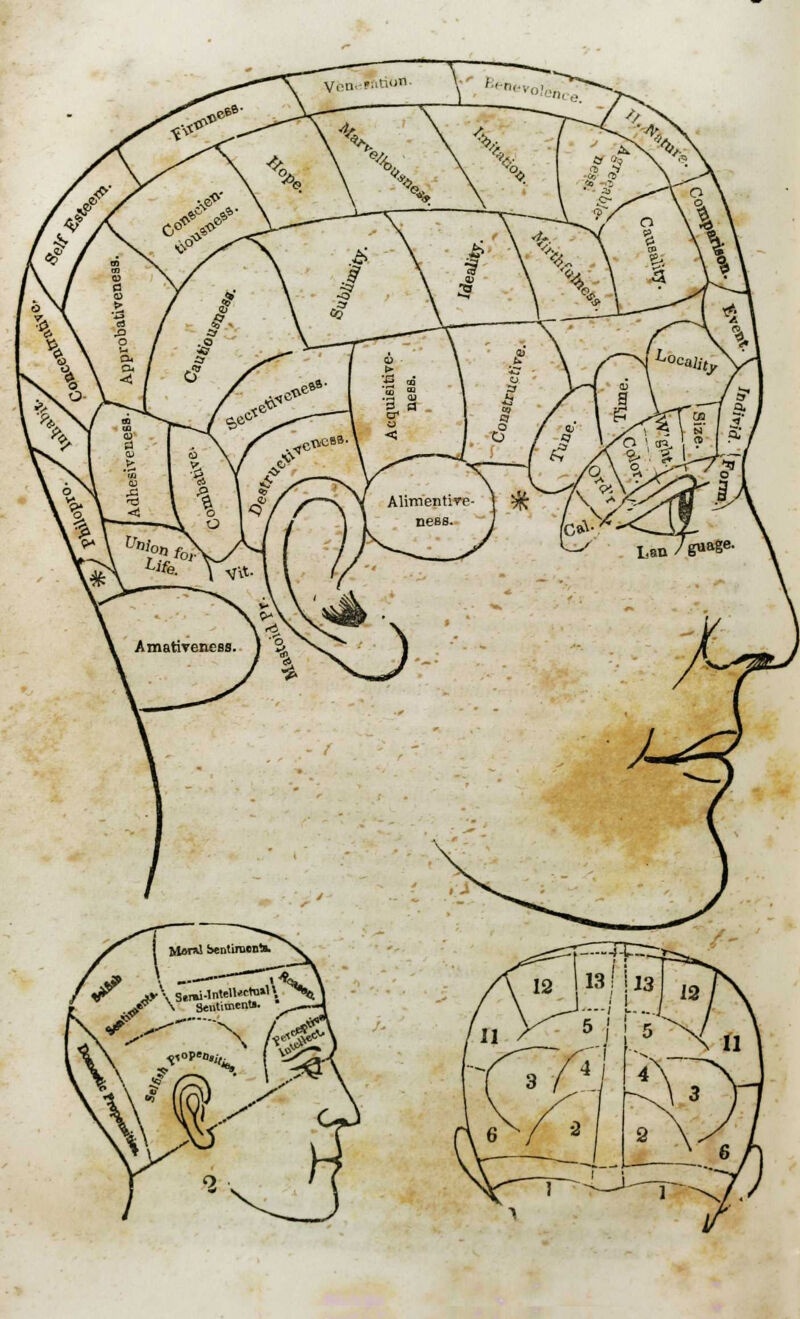 Veneration.
Benevolence.
Firmness.
H. Nature.
Self Esteem.
Conscien-
tiousness.
Hope.
Marvellousness.
Imitation.
Agreeable-
ness.
Comparison.
Causality.
Approbativeness.
Cautiousness.
Sublimity.
Ideality.
Mirthfulness.
Event.
Concentrative.
Secretiveness.
Acquisitive-
ness.
Constructive.
Tune.
Time.
Locality
Individ.
Inhabit.
Adhesiveness.
Combative.
Destructiveness.
Alimentive-
ness.
*
Ord'r
Color.
W'ght.
Size.
Form.
Cal.
Lan guage.
Philopro.
*
Union for
Life.
Vit.
Mastoid Pr.
Amativeness.
Moral Sentiments.
Selfish
Sentiments.
Semi-Intellectual
Sentiments.
Reason.
Perceptive
Intellect.
Domestic Propensities.
Selfish Propensities.
2
12 13 13 12
11 5 5 11
3 4 4 3
6 2 2 6
1 1